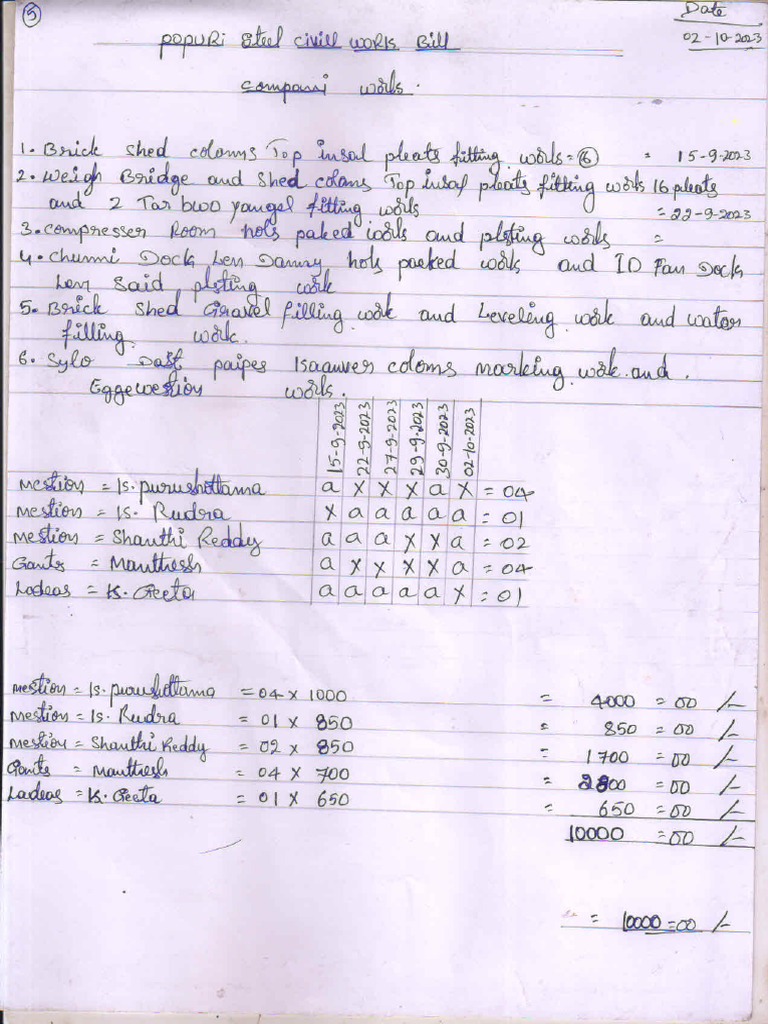 5
Date
02-10-2023
popuRi steel civill works Bill
compani works.
1. Brick shed coloms Top insal pleats fitting works = 16 = 15-9-2023
2. Weigh Bridge and shed coloms Top insal pleats fitting work 16 pleats
and 2 Tar bwo yangel fitting works = 22-9-2023
3. compresser Room hols paked works and plsting works =
4. chumni Dock Len Danny hols packed works and ID Fan Dock
Len Said plsting work
5. Brick shed Gravel filling work and Leveling work and water
filling work.
6. Sylo Dast paipes Isaanver coloms marking work and
Eggewestion works.
15-9-2023 22-9-2023 27-9-2023 29-9-2023 30-9-2023 02-10-2023
mestion = Is. purushottama a x x x a x = 04
mestion = Is. Rudra x a a a a a = 01
mestion = Shanthi Reddy a a a x x a = 02
Gants = Manthesh a x x x x a = 04
Ladeas = K. Geeta a a a a a x = 01
mestion = Is. purushottama = 04 x 1000 = 4000 = 00 /-
mestion = Is. Rudra = 01 x 850 = 850 = 00 /-
mestion = Shanthi Reddy = 02 x 850 = 1700 = 00 /-
Gants = manthesh = 04 x 700 = 2800 = 00 /-
Ladeas = K. Geeta = 01 x 650 = 650 = 00 /-
10000 = 00 /-
= 10000 = 00 /-